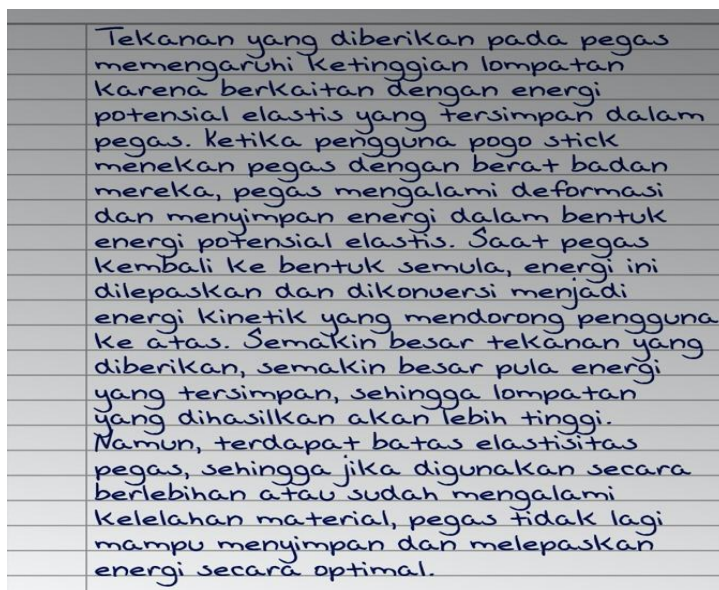 Tekanan yang diberikan pada pegas
memengaruhi ketinggian lompatan
karena berkaitan dengan energi
potensial elastis yang tersimpan dalam
pegas. Ketika pengguna pogo stick
menekan pegas dengan berat badan
mereka, pegas mengalami deformasi
dan menyimpan energi dalam bentuk
energi potensial elastis. Saat pegas
kembali ke bentuk semula, energi ini
dilepaskan dan dikonversi menjadi
energi kinetik yang mendorong pengguna
ke atas. Semakin besar tekanan yang
diberikan, semakin besar pula energi
yang tersimpan, sehingga lompatan
yang dihasilkan akan lebih tinggi.
Namun, terdapat batas elastisitas
pegas, sehingga jika digunakan secara
berlebihan atau sudah mengalami
kelelahan material, pegas tidak lagi
mampu menyimpan dan melepaskan
energi secara optimal.